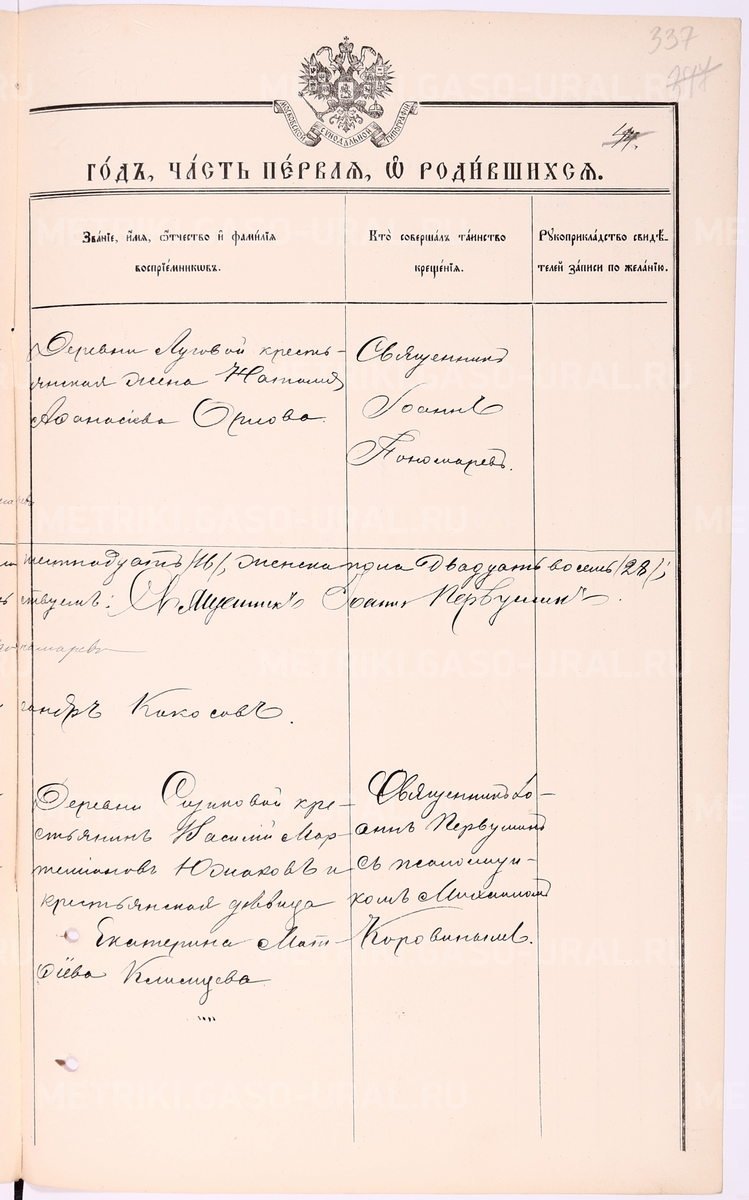 337
МОСКОВСКОЙ СѴНОДАЛЬНОЙ ТИПОГРАФІИ
го́дъ, ча́сть пе́рваѧ, ѽ роди́вшихсѧ.
Зва́ніе, и́мѧ, ѻ҆́тчество и҆ фами́лїѧ
воспрїе́мникѡвъ.
Кто̀ соверша́лъ та́инство
креще́нїѧ.
Рꙋкоприкла́дство свидѣ́-
телей за́писи по жела́нїю.
Деревни Луговой кресть-
янская жена Наталия
Афанасіева Орлова.
Священникъ
Іоаннъ
Пономаревъ.
шестнадцать /16/, женска пола двадцать восемь /28/;
ствуемъ: Священникъ Іоаннъ Первушинъ.
номаревъ
сандръ Кокосовъ.
Деревни кре-
стьянинъ Василій Мар-
темiановъ Южаковъ и
крестьянская дѣвица
Екатерина Мат-
ѳіева
Священникъ Іо-
аннъ Первушинъ
съ псаломщи-
комъ Михаиломъ
Коровинымъ.
METRIKI.GASO-URAL.RU